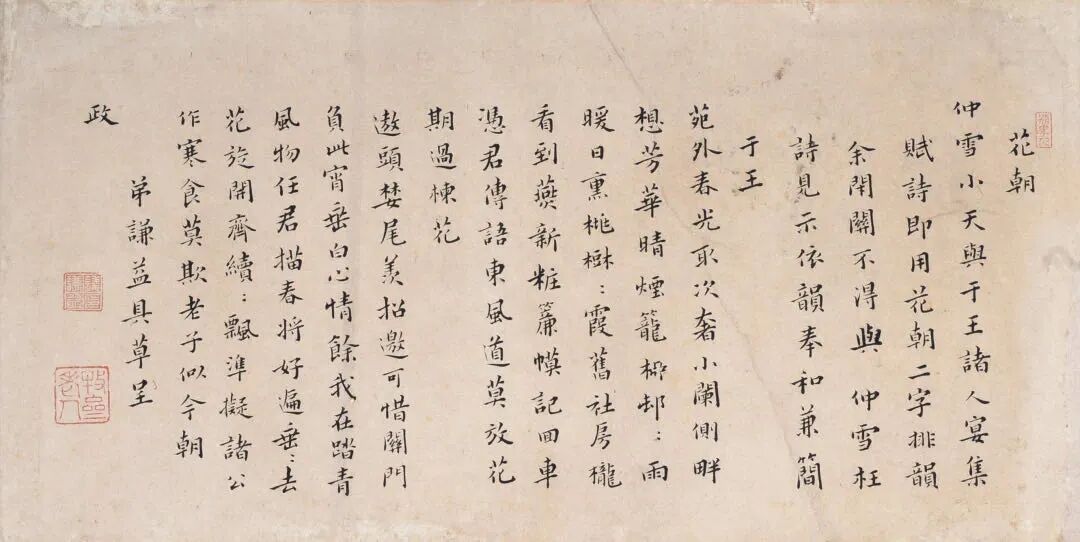 花朝
仲雪小天與于王諸人宴集
賦詩即用花朝二字排韻
余閉關不得與仲雪枉
詩見示依韻奉和兼簡
于王
苑外春光取次奢小闌側畔
想芳華晴煙籠柳邨：雨
暖日熏桃樹：霞舊社房櫳
看到燕新粧簾幙記回車
憑君傳語東風道莫放花
期過楝花
遨頭婪尾羨招邀可惜關門
負此宵垂白心情餘我在踏青
風物任君描春將好遍垂：去
花旋開齊續：飄準擬諸公
作寒食莫欺老子似今朝
弟謙益具草呈
政
牧翁老人